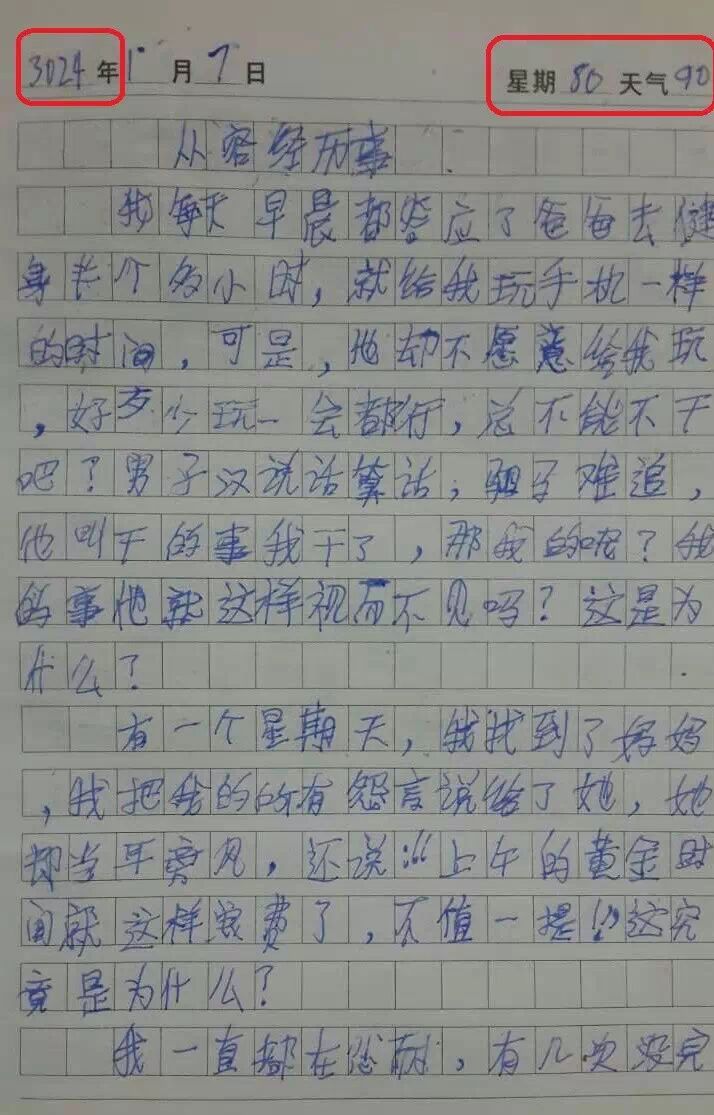 3024年1月7日 星期80天气90
从容经历事
我每天早晨都答应了爸爸去健
身长个多小时，就给我玩手机一样
的时间，可是，他却不愿意给我玩
，好歹少玩一会都行，总不能不干
吧？男子汉说话算话，驷马难追，
他叫干的事我干了，那我的呢？我
的事他就这样视而不见吗？这是为
什么？
有一个星期天，我找到了妈妈
，我把我的所有怨言说给了她，她
却当耳旁风，还说“上午的黄金时
间就这样浪费了，不值一提！”这究
竟是为什么？
我一直都在忍耐，有几次没完